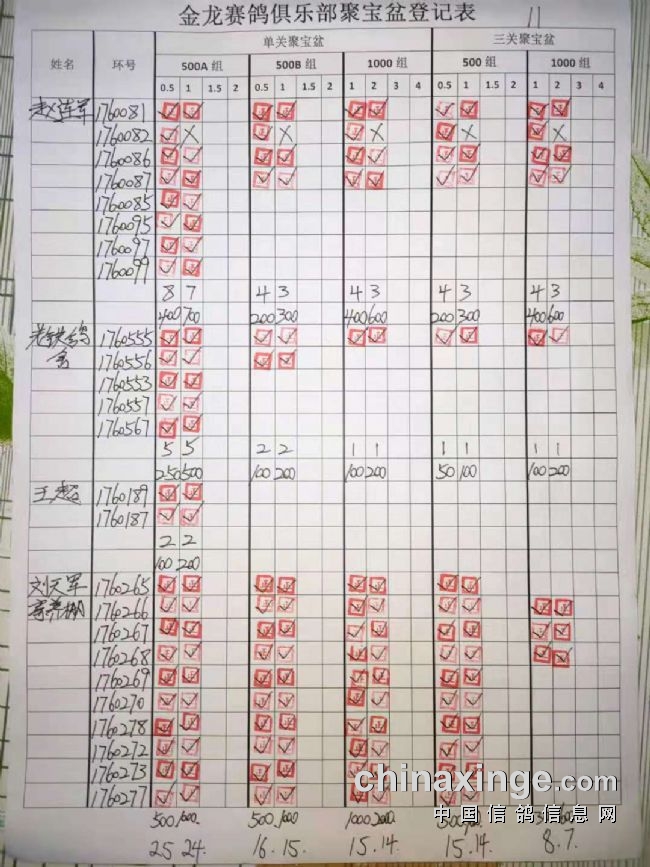 金龙赛鸽俱乐部聚宝盆登记表 11
姓名 环号 单关聚宝盆 三关聚宝盆
500A 组 500B 组 1000 组 500 组 1000 组
0.5 1 1.5 2 0.5 1 1.5 2 1 2 3 4 0.5 1 1.5 2 1 2 3 4
赵连军 1760081
1760082 × × × × ×
1760086
1760087
1760085
1760095
1760097
1760099
8 7 4 3 4 3 4 3 4 3
400 700 200 300 400 600 200 300 400 600
1760555
1760556
1760553
1760557
1760567
5 5 2 2 1 1 1 1 1 1
250 500 100 200 100 200 50 100 100 200
王超 1760189
1760187
2 2
100 200
刘天军 1760265
1760266
1760267
1760268
1760269
1760270
1760278
1760272
1760273
1760277
500 1000 500 1000 1000 2000
25 24. 16. 15. 15. 14. 15. 14. 8. 7.
chinaxinge.com
中国信鸽信息网